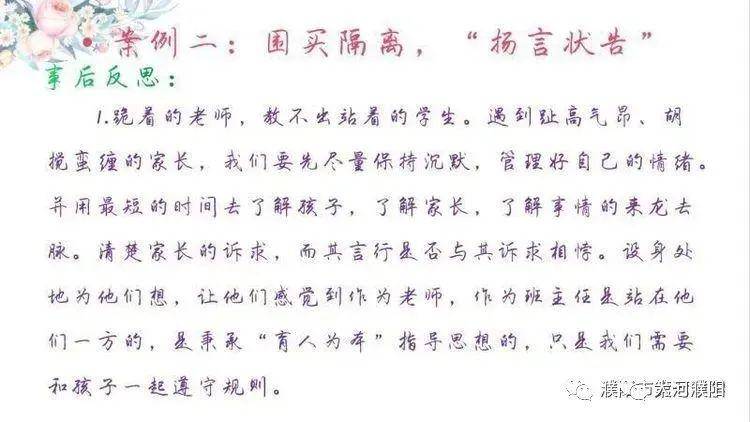 •案例二：围买隔离，“扬言状告”
事后反思：
1.跪着的老师，教不出站着的学生。遇到趾高气昂、胡
搅蛮缠的家长，我们要先尽量保持沉默，管理好自己的情绪。
并用最短的时间去了解孩子，了解家长，了解事情的来龙去
脉。清楚家长的诉求，而其言行是否与其诉求相悖。设身处
地为他们想，让他们感觉到作为老师，作为班主任是站在他
们一方的，是秉承“育人为本”指导思想的，只是我们需要
和孩子一起遵守规则。